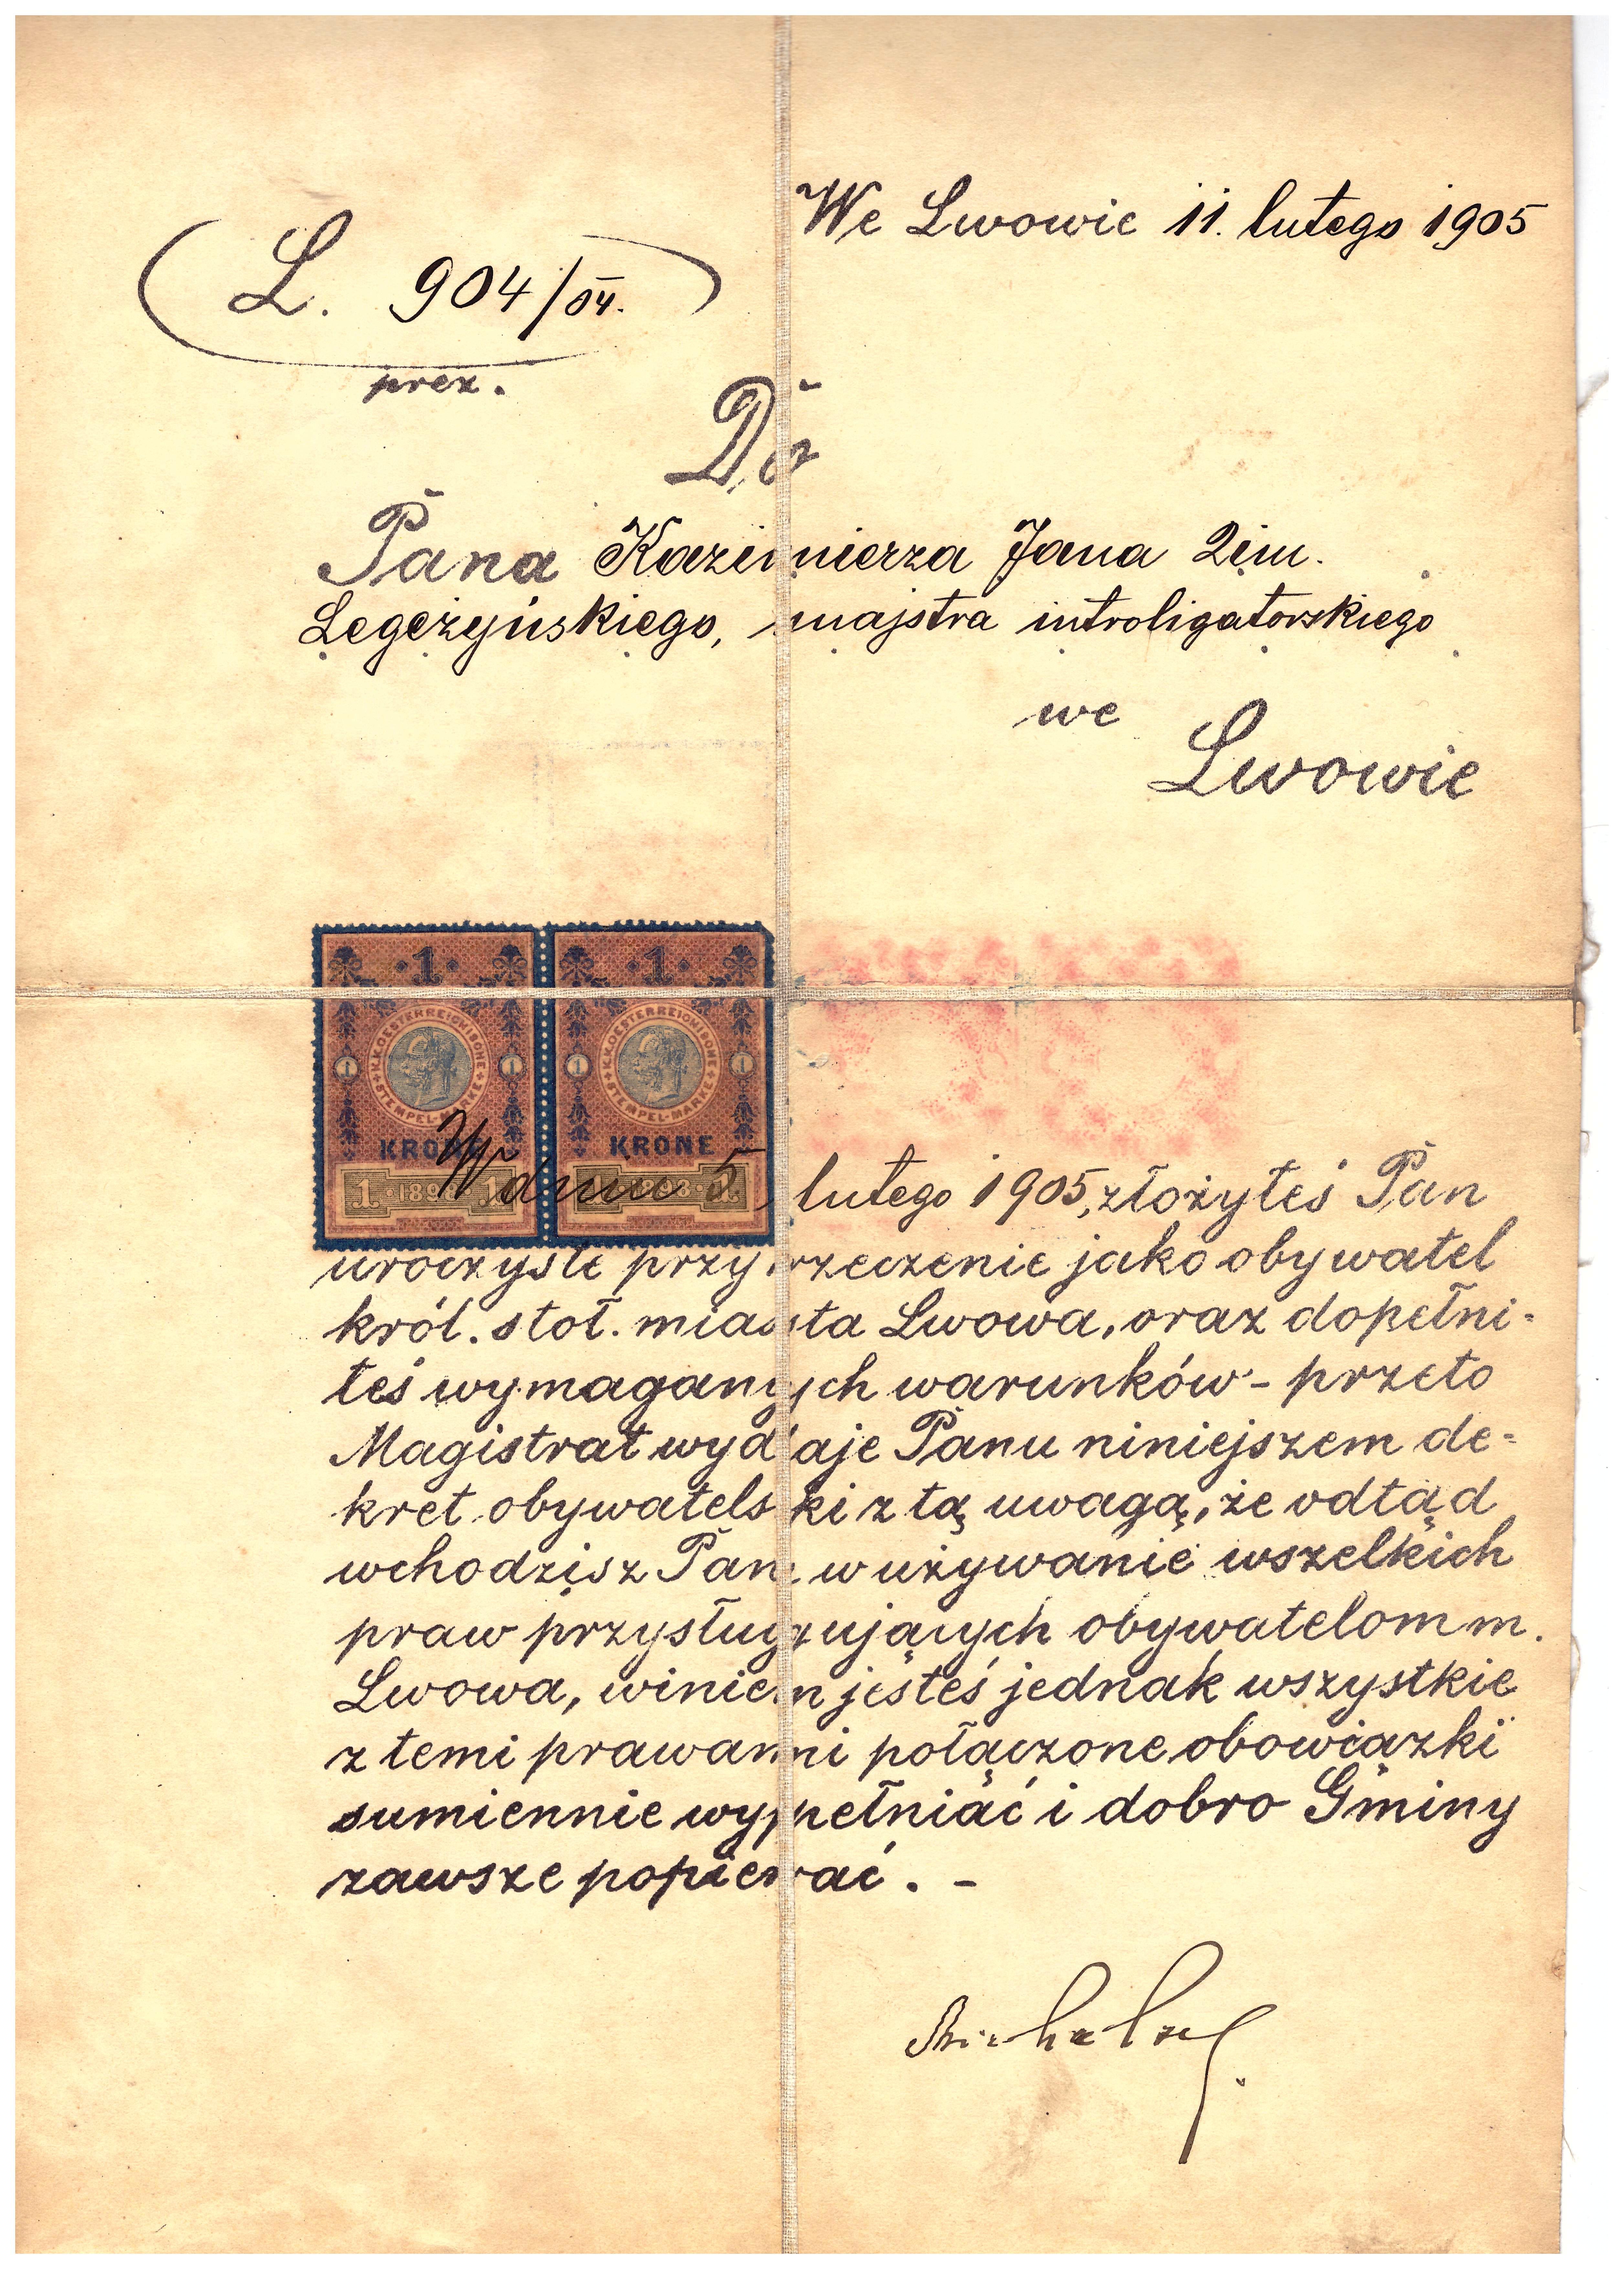 We Lwowie 11. lutego 1905
L. 904/04.
prez.
Do
Pana Kazimierza Jana 2im.
Legeżyńskiego, majstra introligatorskiego
we
Lwowie
1 1
K.K. OESTERREICHISCHE STEMPEL-MARKE K.K. OESTERREICHISCHE STEMPEL-MARKE
1 1 1 1
KRONE KRONE
1 1898 1 1898 1
W dniu 5 lutego 1905, złożyłeś Pan
uroczyste przyrzeczenie jako obywatel
król. stoł. miasta Lwowa, oraz dopełni-
łeś wymaganych warunków - przeto
Magistrat wydaje Panu niniejszem de-
kret obywatelski z tą uwagą, że odtąd
wchodzisz Pan w używanie wszelkich
praw przysługujących obywatelom m.
Lwowa, winien jesteś jednak wszystkie
z temi prawami połączone obowiązki
sumiennie wypełniać i dobro Gminy
zawsze popierać. -